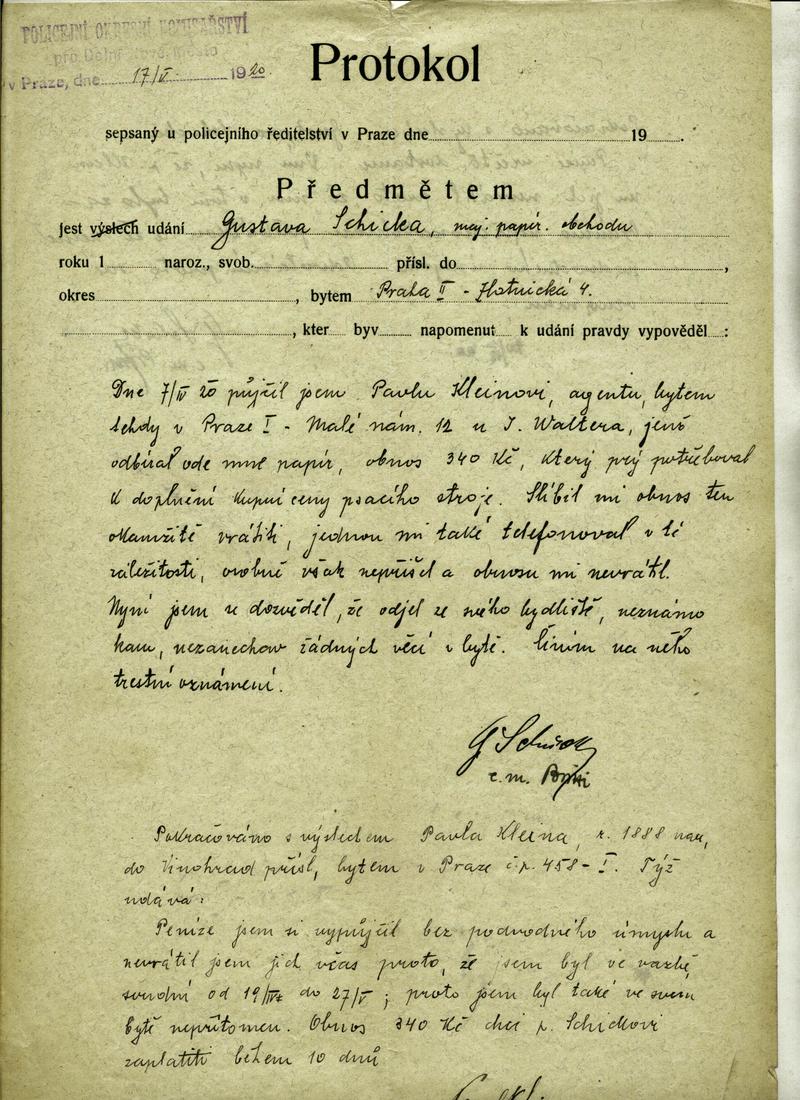 POLICEJNÍ OKRESNÍ KOMISAŘSTVÍ
pro Dolní Nové město
v Praze, dne 17/V. 1920
Protokol
sepsaný u policejního ředitelství v Praze dne 19 .
Předmětem
jest výslech udání Gustava Schicka, maj. papír. obchodu
roku 1 naroz., svob. přísl. do ,
okres , bytem Praha II - Zlatnická 4.
, kter byv napomenut k udání pravdy vypověděl :
Dne 7/IV 20 půjčil jsem Pavlu Kleinovi, agentu, bytem
tehdy v Praze I - Malé nám. 12 u J. Waltera, jenž
odbíral ode mne papír, obnos 340 Kč, který prý potřeboval
k doplnění kupní ceny psacího stroje. Slíbil mi obnos ten
okamžitě vrátiti, jednou mi také telefonoval v té
záležitosti, osobně však nepřišel a obnosu mi nevrátil.
Nyní jsem se dozvěděl, že odjel ze svého bydliště, neznámo
kam, nezanechav žádných věcí v bytě. Činím na něho
trestní oznámení.
G Schick
c. m.
Pokračováno s výslechem Pavla Kleina, r. 1888 nar.,
do Vinohrad přísl., bytem v Praze č.p. 458 - I. Týž
udává:
Peníze jsem si vypůjčil bez podvodného úmyslu a
nevrátil jsem jich včas proto, že jsem byl ve vazbě
soudní od 19/IV do 27/V; proto jsem byl také ve svém
bytě nepřítomen. Obnos 340 Kč chci p. Schickovi
zaplatiti během 10 dnů